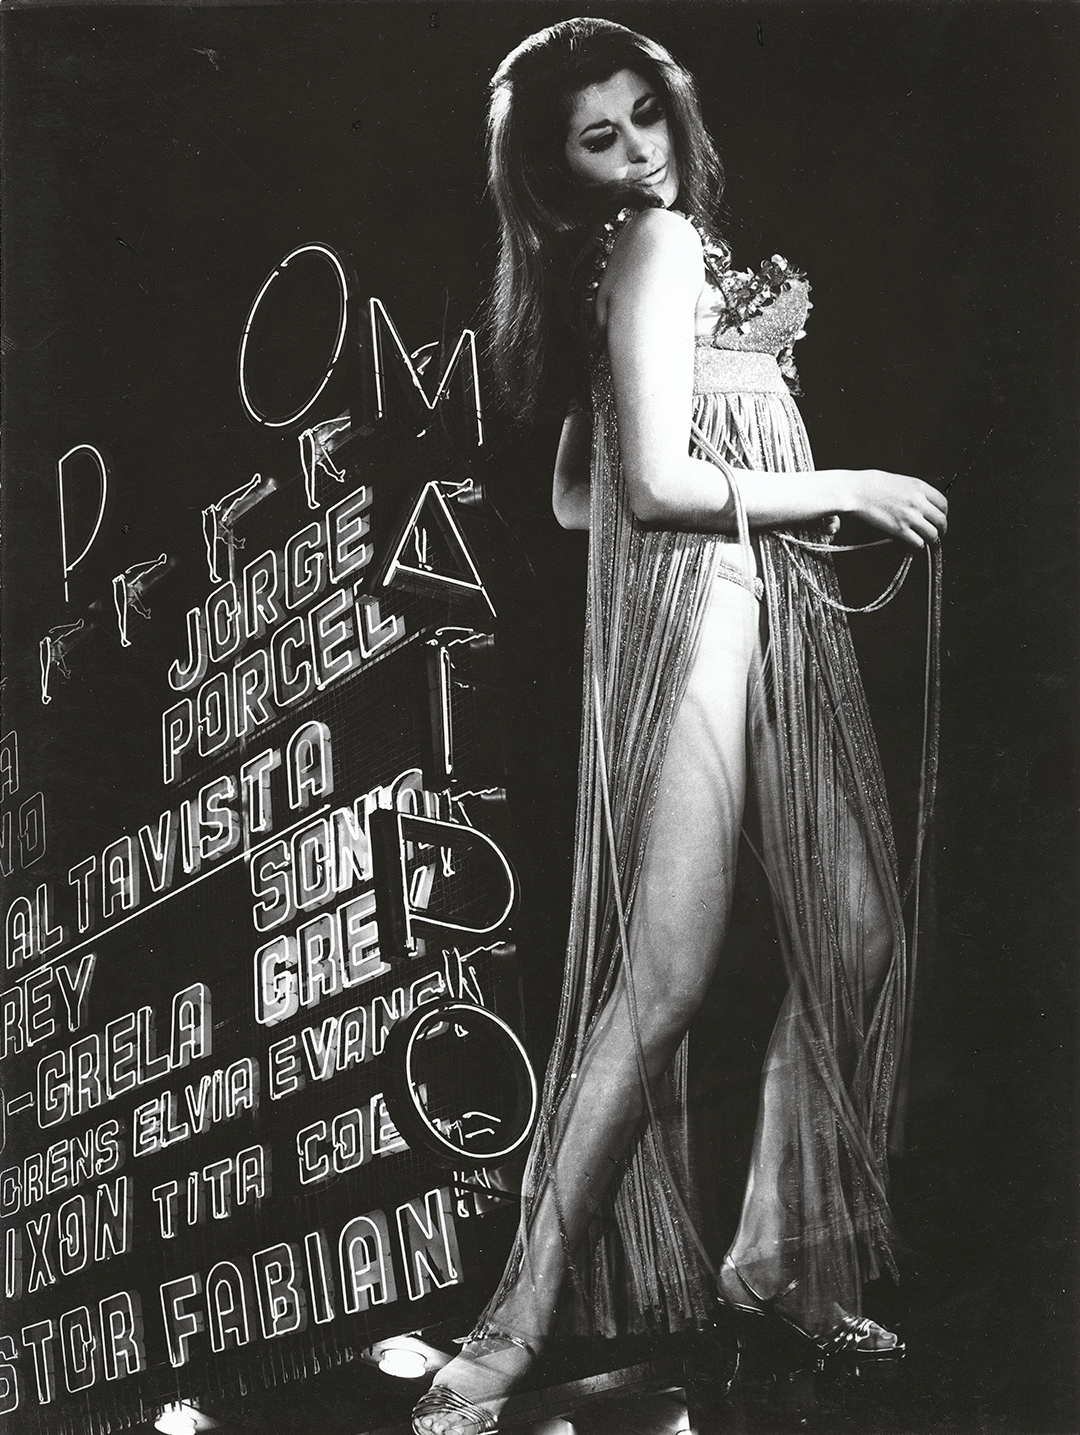 P
O
MAIPO
JORGE
PORCEL
ALTAVISTA
SONIA
REY
GRE
-GRELA
ELVIA EVANS
ORENS
IXON TITA COE
STOR FABIAN